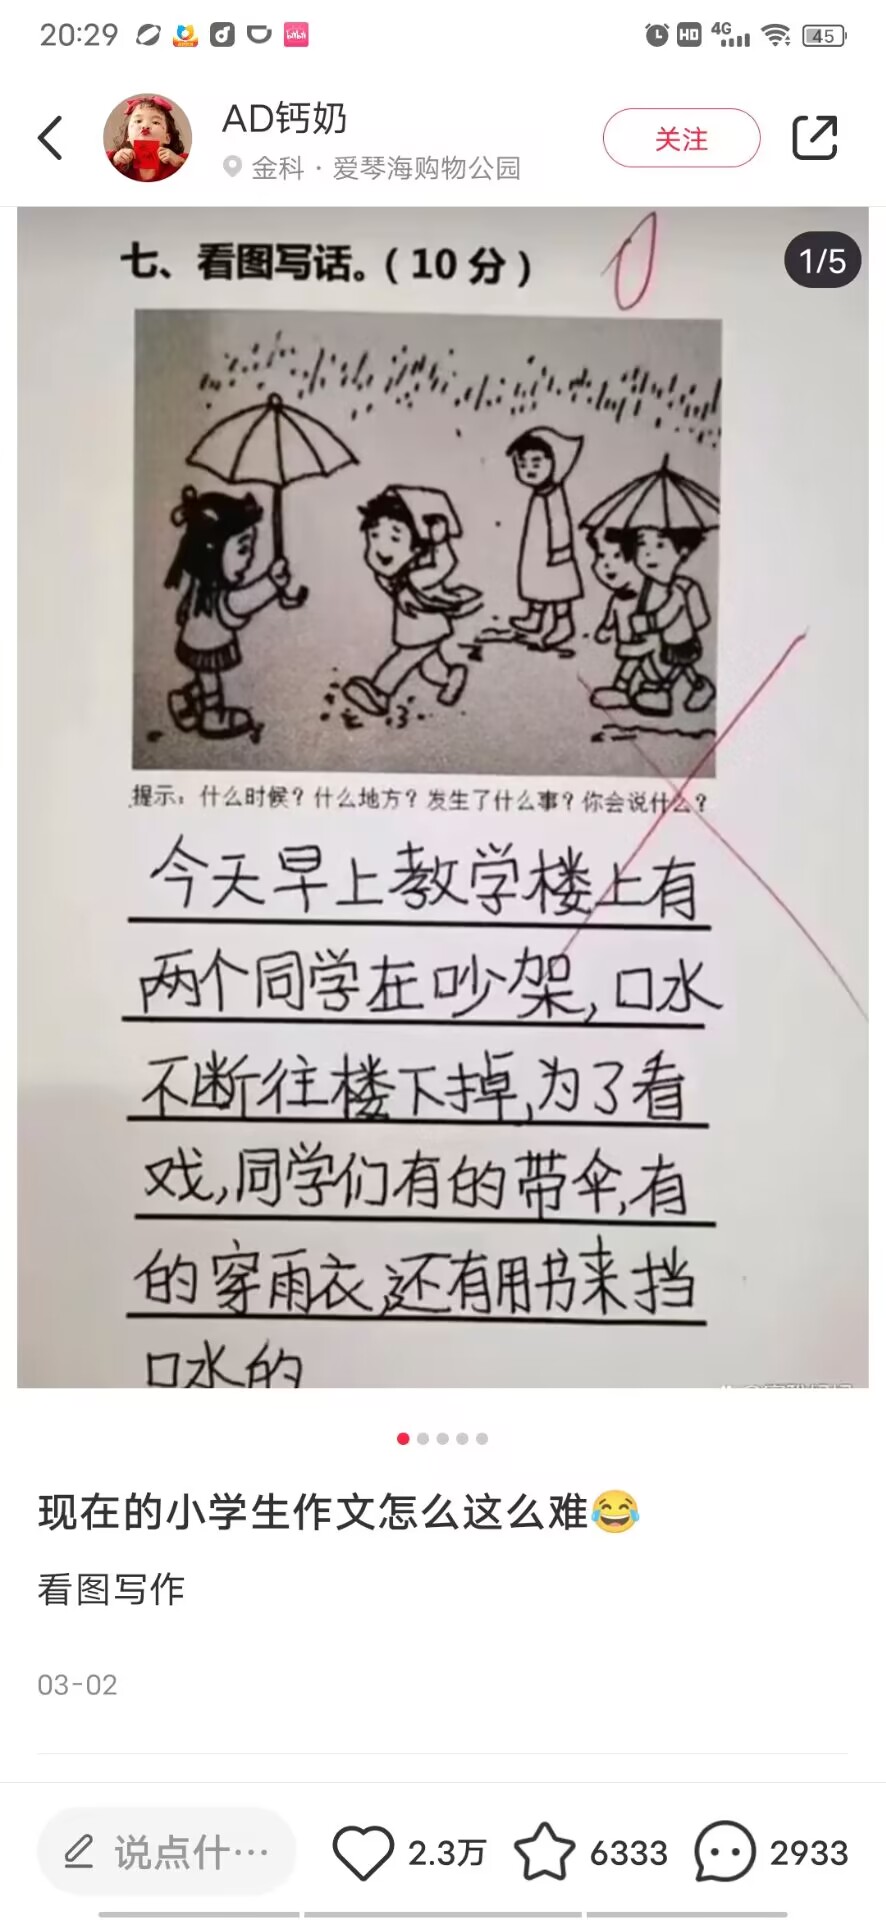 20:29
HD 4G 45
AD钙奶
金科·爱琴海购物公园
关注
七、看图写话。(10分)
0
1/5
提示：什么时候？什么地方？发生了什么事？你会说什么？
今天早上教学楼上有
两个同学在吵架,口水
不断往楼下掉,为了看
戏,同学们有的带伞,有
的穿雨衣,还有用书来挡
口水的
现在的小学生作文怎么这么难😂
看图写作
03-02
说点什…
2.3万
6333
2933